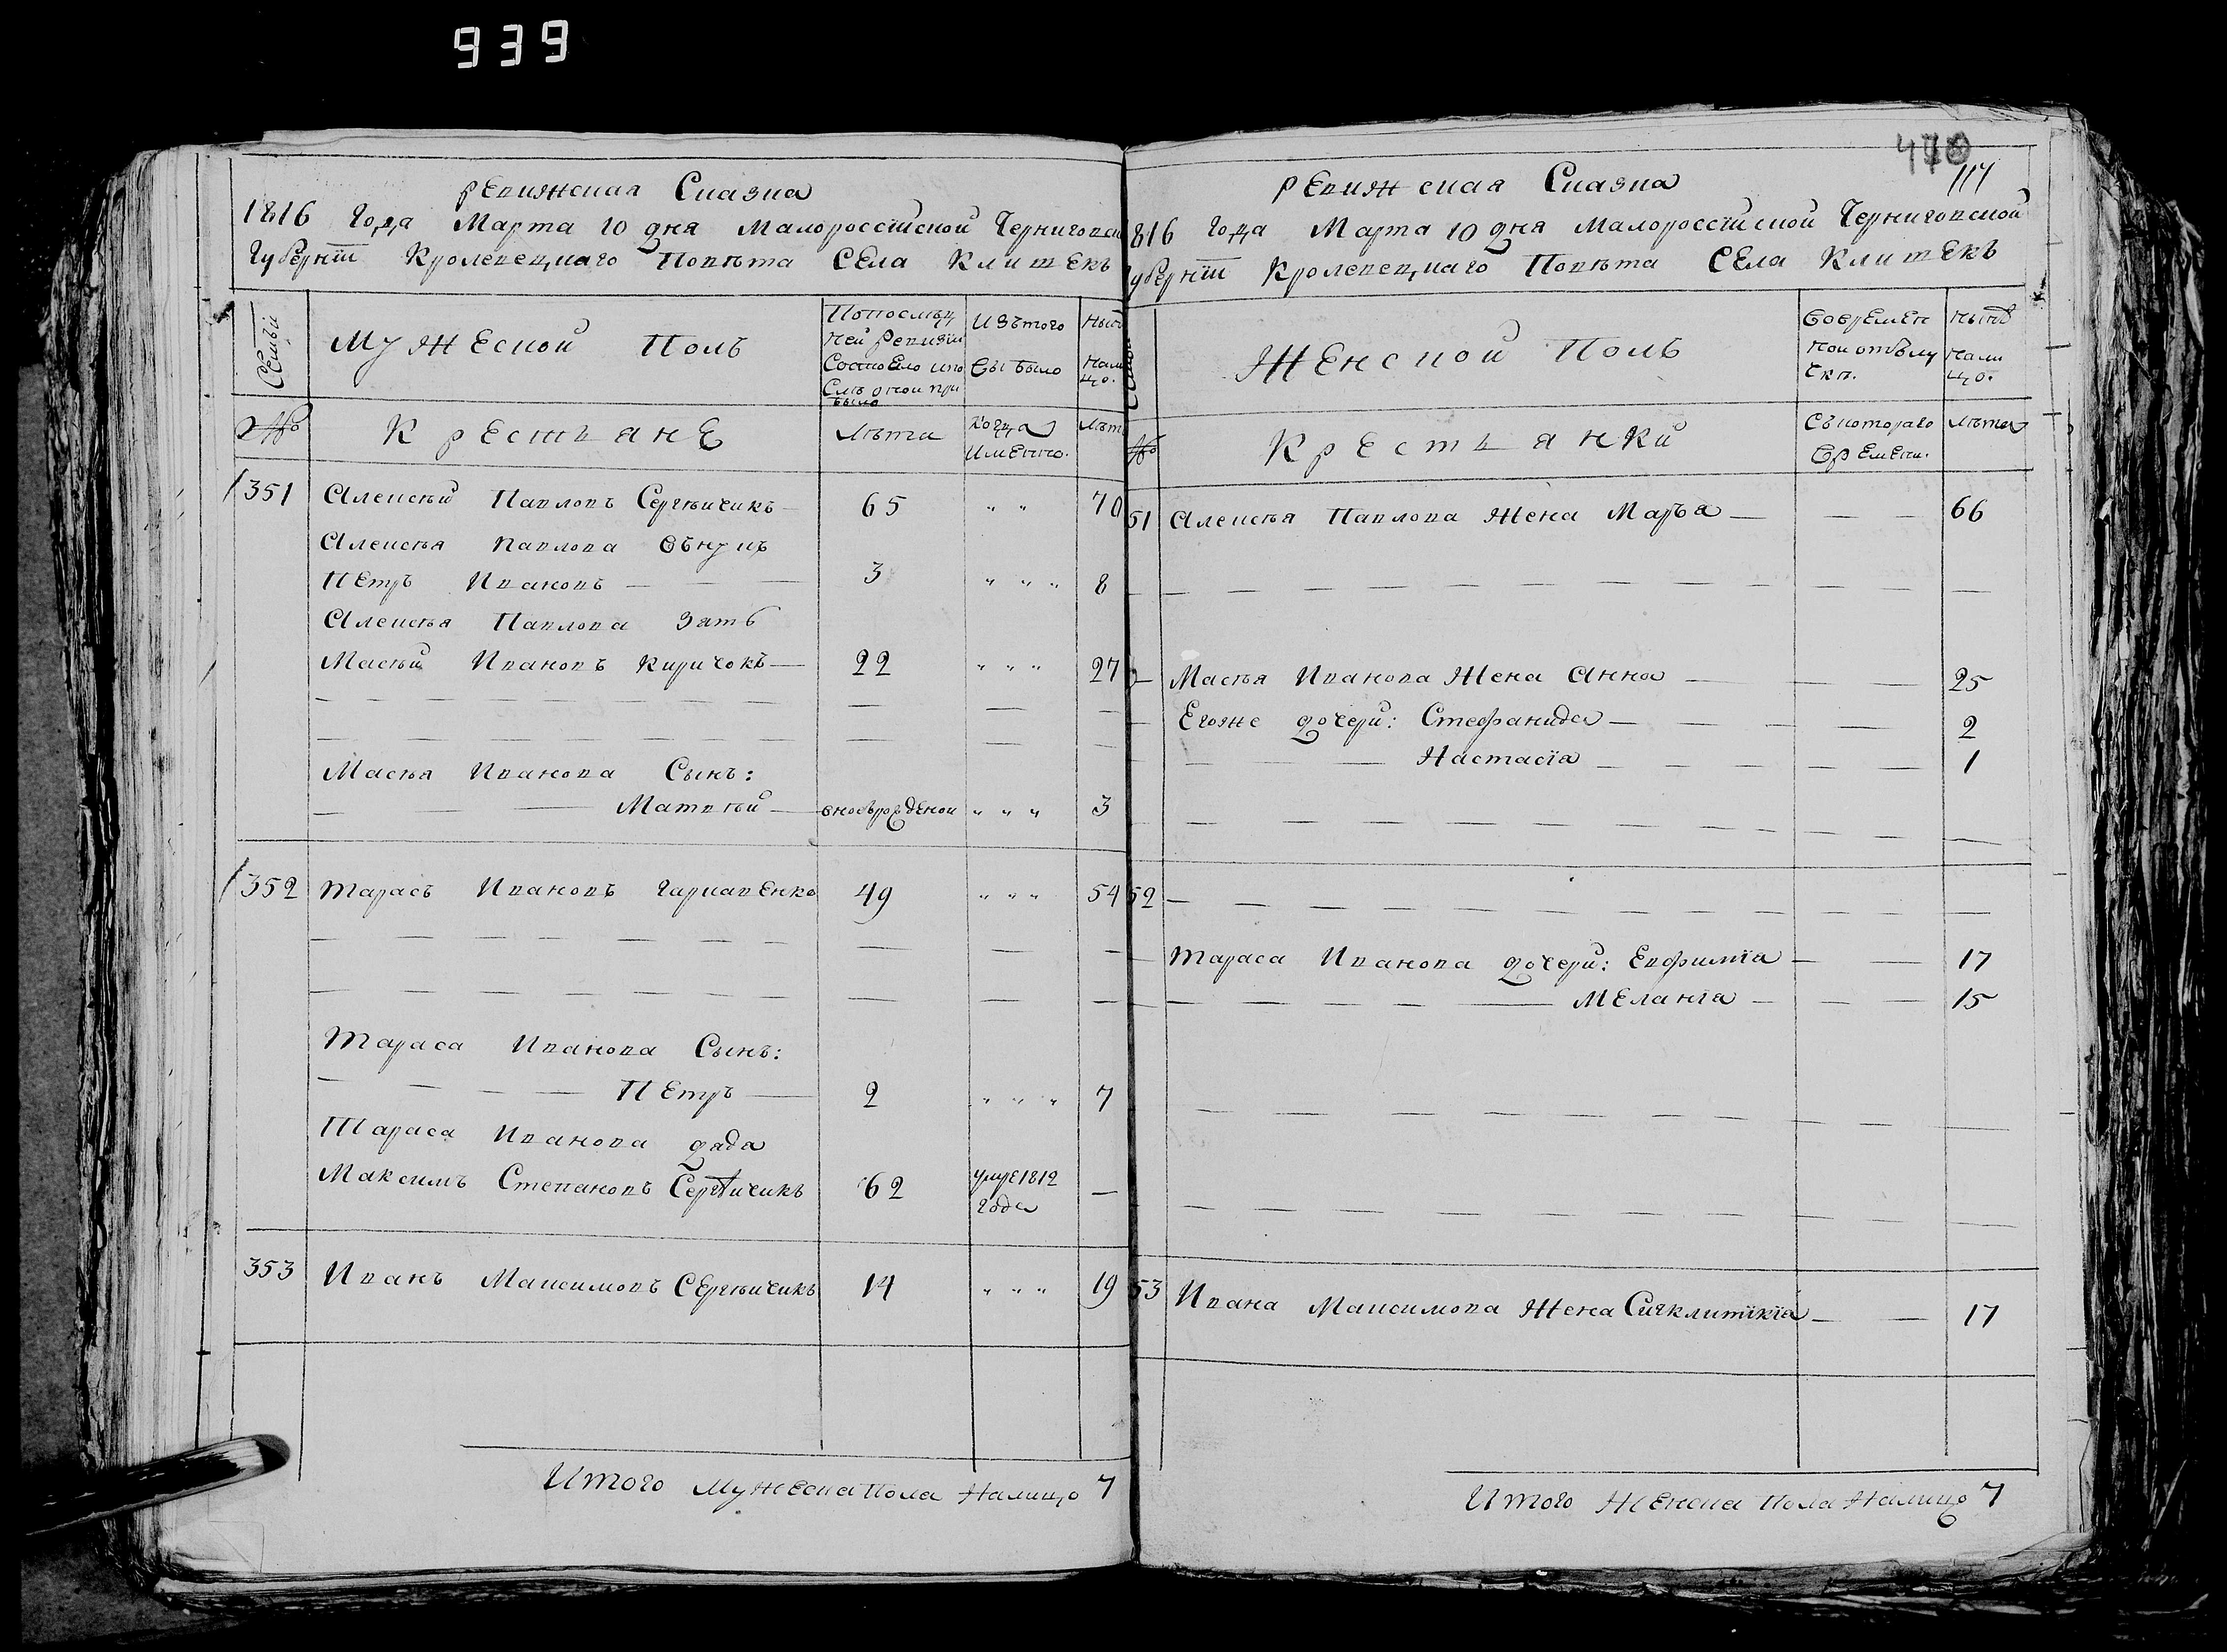 939
ревижская Сказка
1816 года Марта 10 дня Малороссїиской Чернигов
Губернїи Кролевецкаго Повѣта СЕла КлишЕкъ
СЕмьи
МужЕской Полъ
Попослѣд
ней ревизїи
Состояло ипо
Слѣ оной при
было
Изъ того
выбыло
Нынѣ
Нали
цо.
№
КрЕстьянЕ
Лѣта
Когда
ИмЕнно.
Лѣт
351 Алексѣй Павловъ Сергѣичикъ 65 " " 70
Алексѣя Павлова Внукъ
ПЕтръ Ивановъ 3 " " " 8
Алексѣя Павлова Зять
Масѣй Ивановъ Киричокъ 22 " " " 27
Масѣя Иванова Сынъ:
Матвѣй вновьрожденой " " " 3
352 Тарасъ Ивановъ ГаркавЕнко 49 " " " 54
Тараса Иванова Сынъ:
ПЕтръ 2 " " " 7
Тараса Иванова дядя
Максимъ Степановъ Сергѣичикъ 62 умре 1812
года
353 Иванъ Максимовъ СЕргѣичикъ 14 " " " 19
Итого МужЕска Пола Налицо 7
470
117
ревижская Сказка
816 года Марта 10 дня Малороссїиской Черниговской
убернїи Кролевецкаго Повѣта СЕла КлишЕкъ
ЖЕнской Полъ
ВоврЕмЕн
ной отлу
Нынѣ
Нали
цо.
№
КрЕстьянки
Съкотораго
врЕмЕни.
Лѣта
51 Алексѣя Павлова Жена Марья 66
Масѣя Иванова Жена Анна 25
Егоже дочери: Стефанида 2
Настасїя 1
52
Тараса Иванова дочери: Евфимїя 17
МЕланїя 15
53 Ивана Максимова Жена Сигклитикїя 17
Итого ЖЕнска Пола Налицо 7